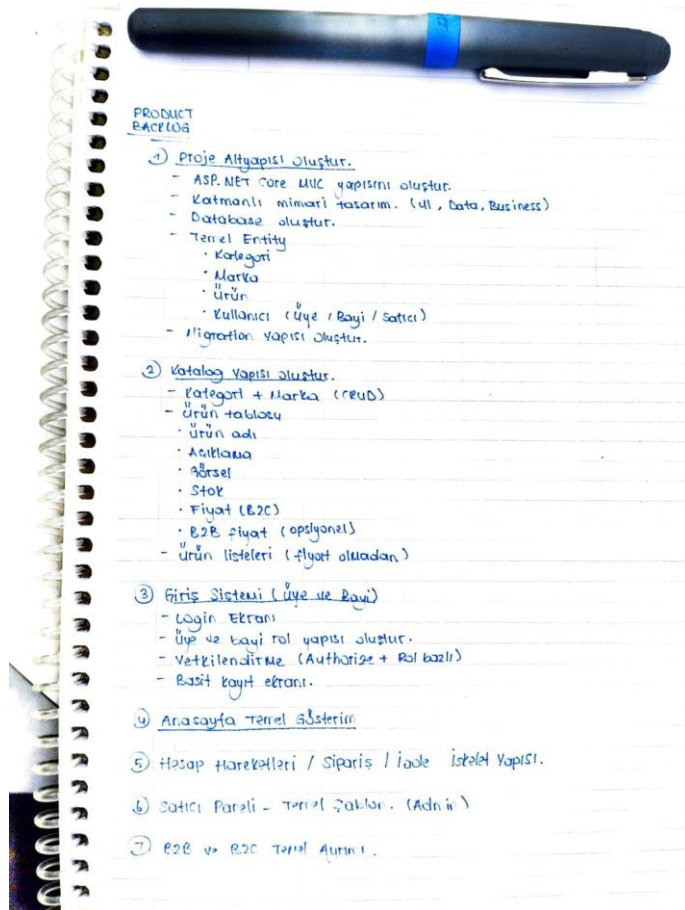 PRODUCT
BACKLOG
1) Proje Altyapısı oluştur.
- ASP.NET Core MVC yapısını oluştur.
- Katmanlı mimari tasarım. (UI, Data, Business)
- Database oluştur.
- Temel Entity
· Kategori
· Marka
· Ürün
· Kullanıcı (Üye / Bayi / Satıcı)
- Migration yapısı oluştur.
2) Katalog yapısı oluştur.
- Kategori + Marka (CRUD)
- Ürün tablosu
· Ürün adı
· Açıklama
· Görsel
· Stok
· Fiyat (B2C)
· B2B fiyat (opsiyonel)
- Ürün listeleri (fiyat olmadan)
3) Giriş Sistemi (Üye ve Bayi)
- Login Ekranı
- Üye ve bayi rol yapısı oluştur.
- Yetkilendirme (Authorize + Rol bazlı)
- Basit kayıt ekranı.
4) Anasayfa Temel Gösterim
5) Hesap Hareketleri / Sipariş / İade İskelet Yapısı.
6) Satıcı Paneli - Temel Şablon. (Admin)
7) B2B ve B2C Temel Ayrımı.